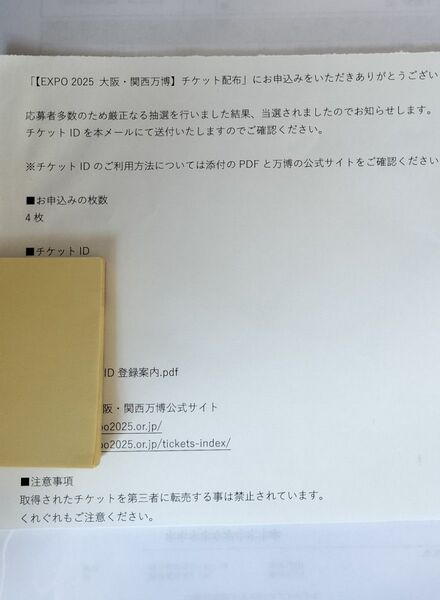 「【EXPO 2025 大阪・関西万博】チケット配布」にお申込みをいただきありがとうござい
応募者多数のため厳正なる抽選を行いました結果、当選されましたのでお知らせします。
チケット ID を本メールにて送付いたしますのでご確認ください。
※チケット ID のご利用方法については添付の PDF と万博の公式サイトをご確認ください
■お申込みの枚数
4 枚
■チケット ID
ID 登録案内.pdf
阪・関西万博公式サイト
po2025.or.jp/
po2025.or.jp/tickets-index/
■注意事項
取得されたチケットを第三者に転売する事は禁止されています。
くれぐれもご注意ください。